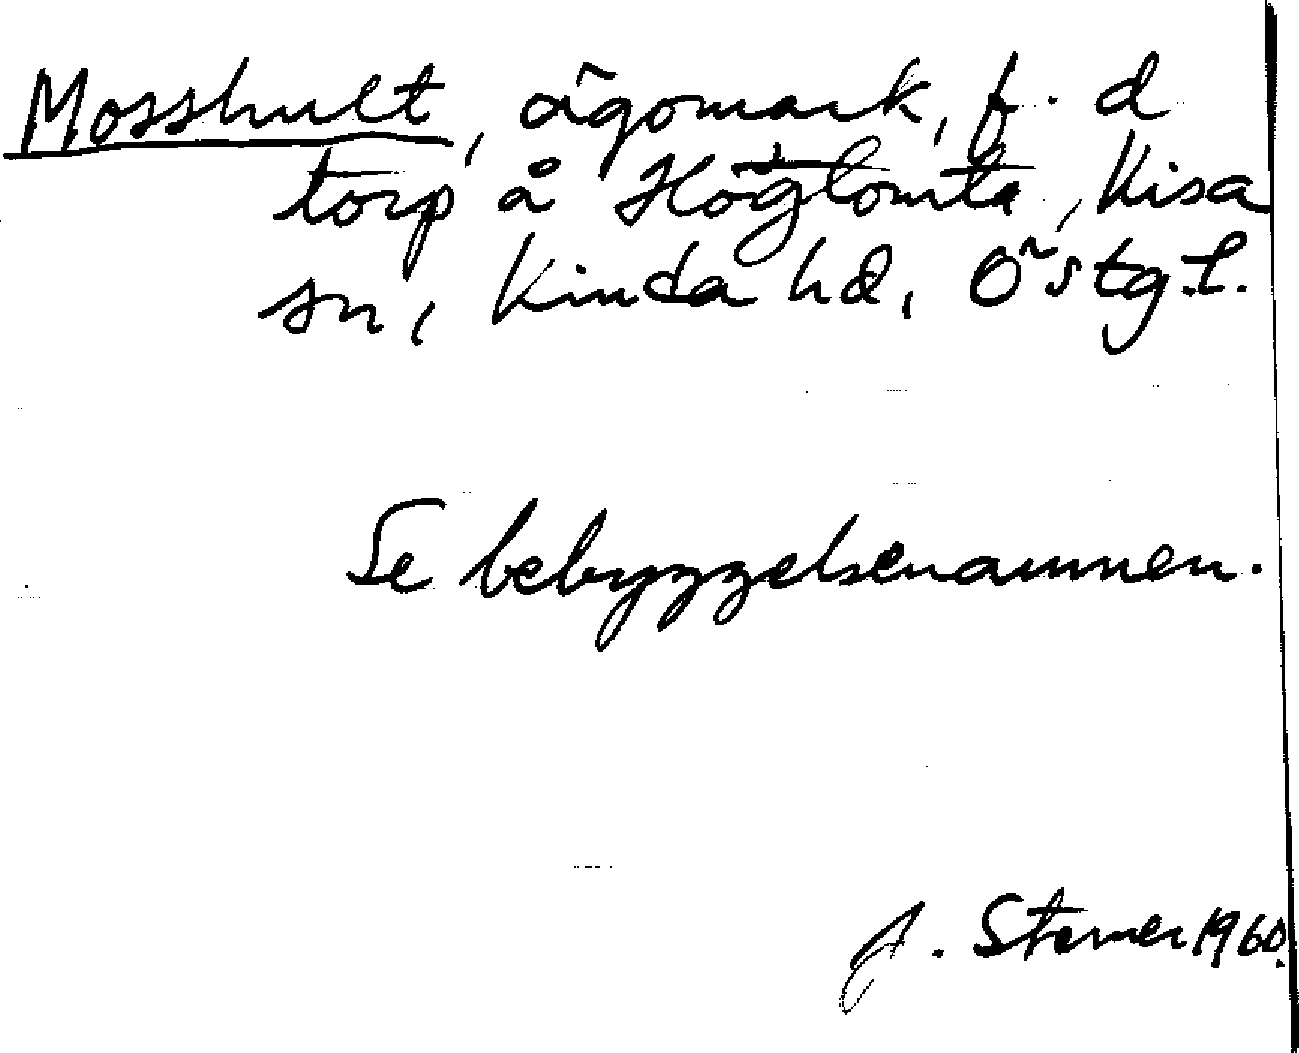 Mosshult, ägomark, f. d
torp å Högtomta, Kisa
sn, Kinda hd, Östg.l.
Se bebyggelsenamnen.
A. Sterner 1960.